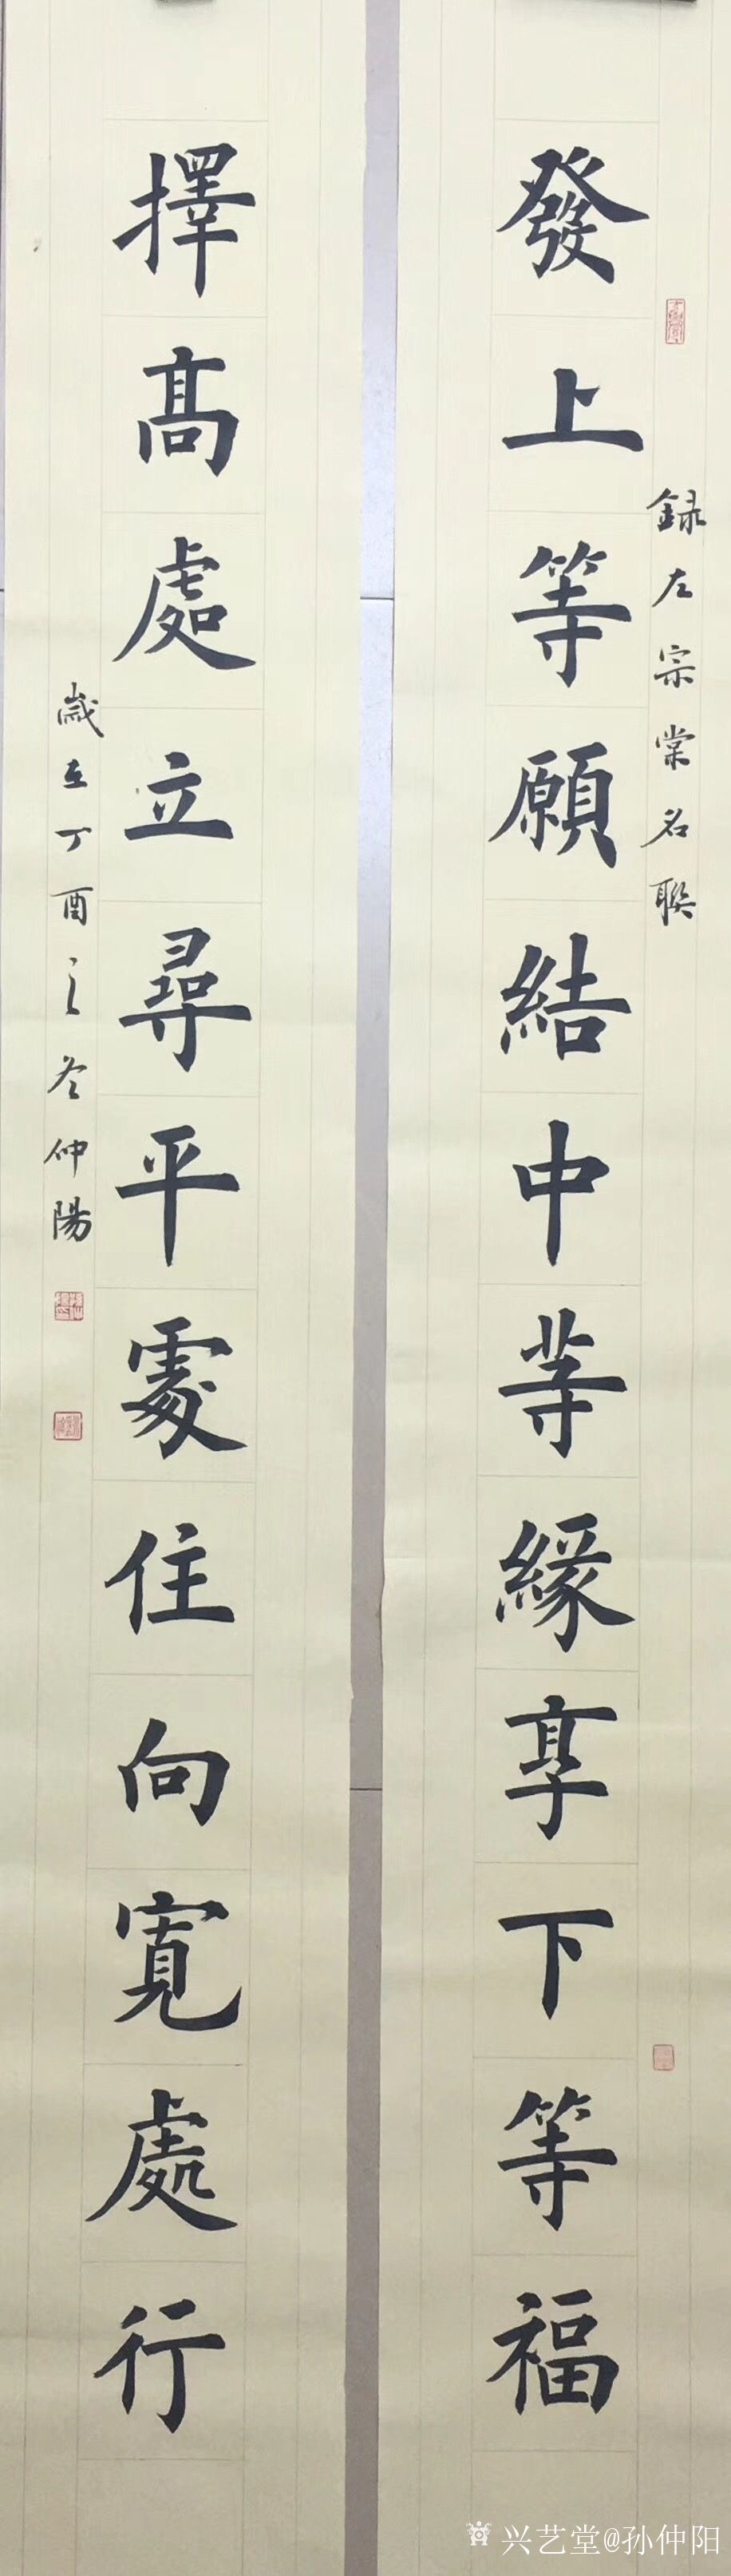 錄左宗棠名聯
發上等願結中等緣享下等福
擇高處立尋平處住向寬處行
歲在丁酉之冬仲陽
兴艺堂@孙仲阳